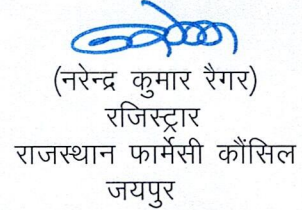 (नरेन्द्र कुमार रैगर)
रजिस्ट्रार
राजस्थान फार्मेसी कौंसिल
जयपुर